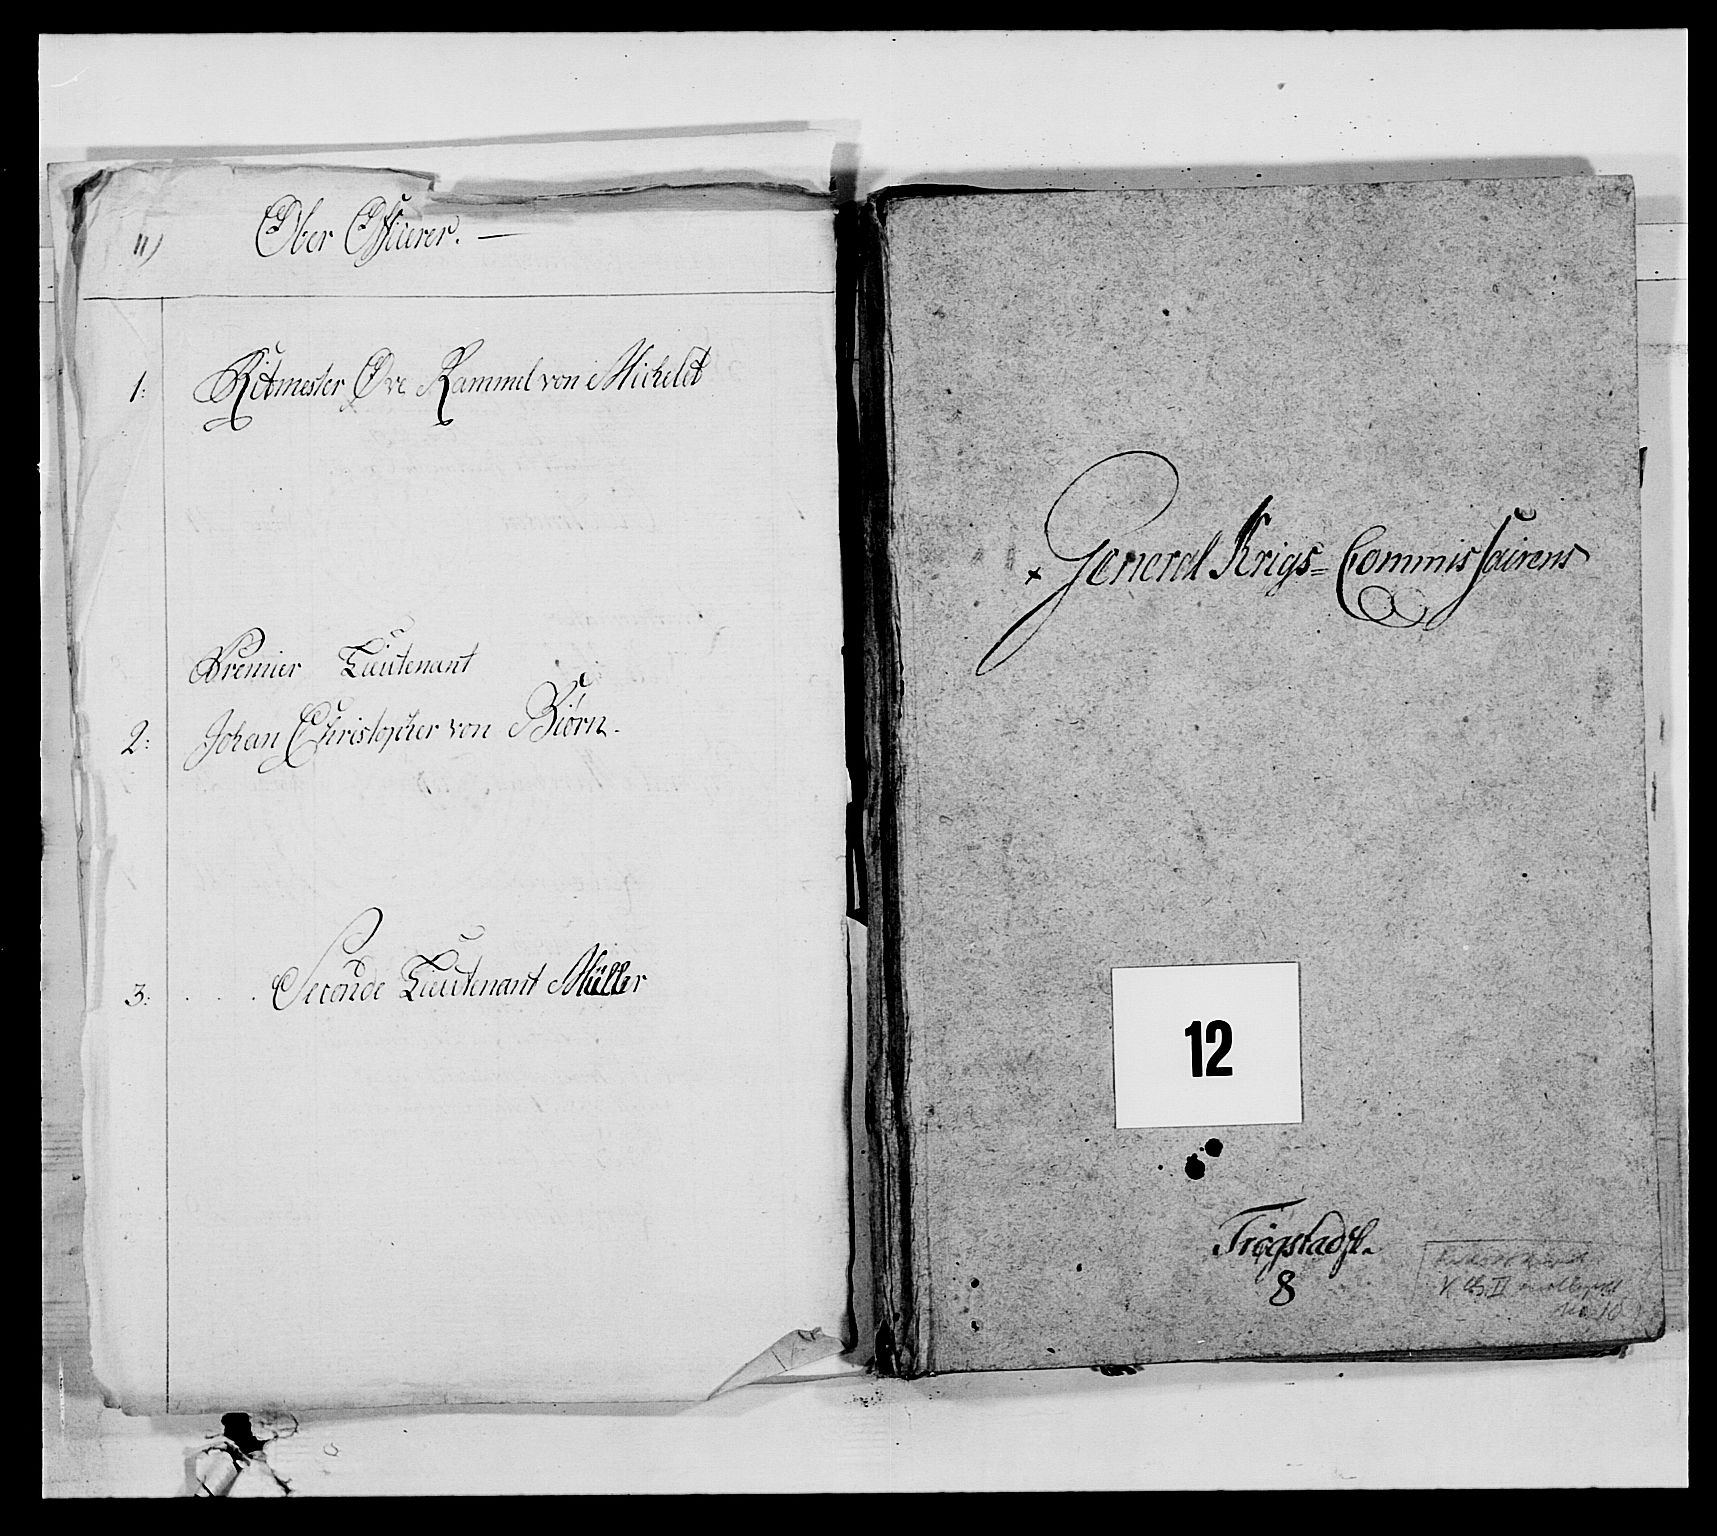 11) Ober Officerer. —
1: Ritmester Ove Rammel von Michelet
Premier Lieutenant
2: Johan Christopher von Biørn.
3: . . . Seconde Lieutenant Müller
General Krigs= Commissairens
12
Trøgstad
8
No 10